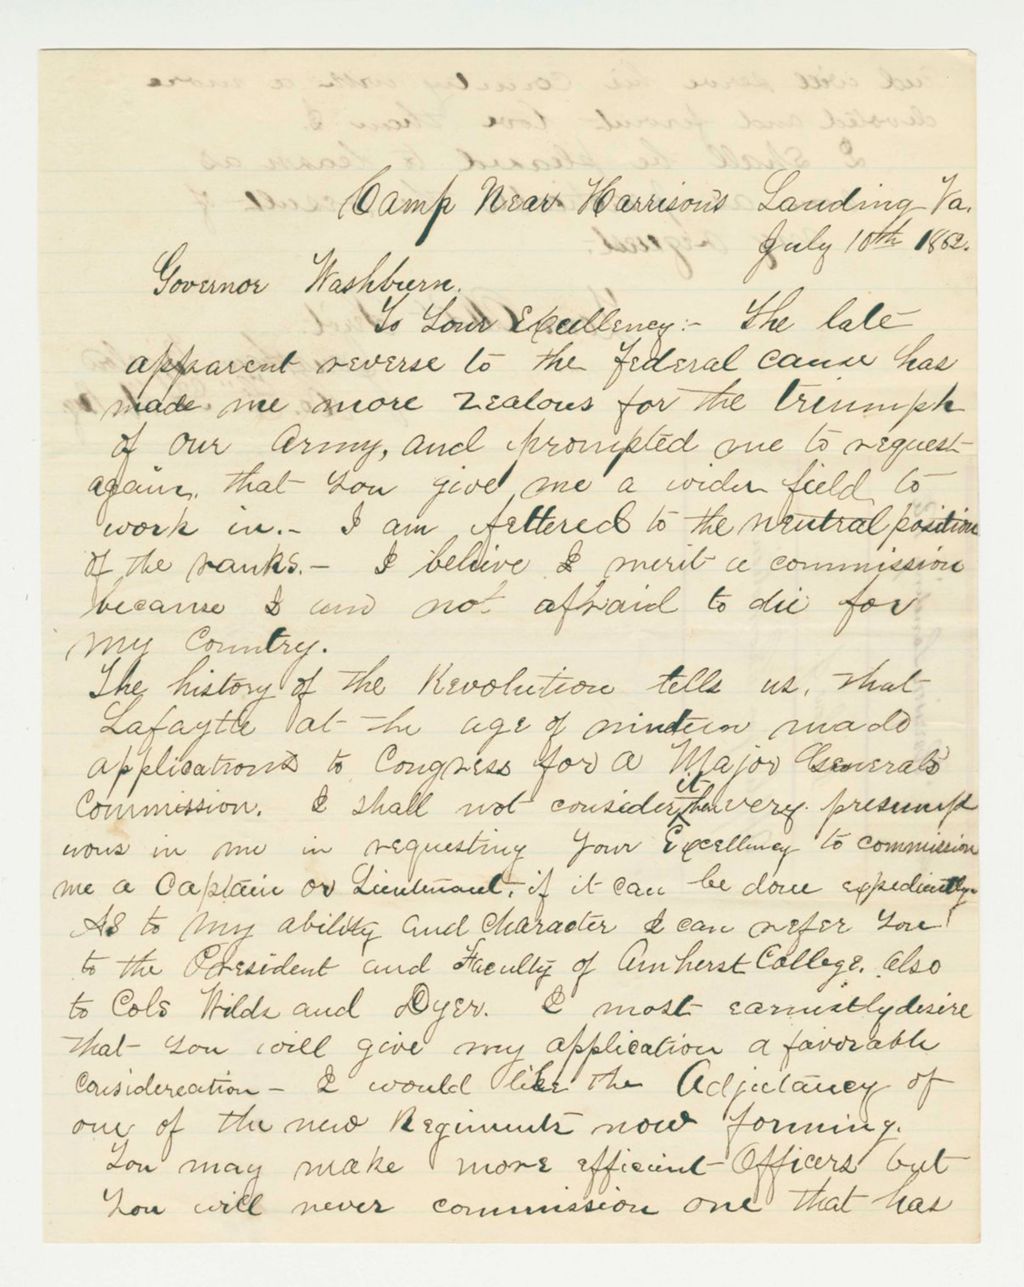 Camp Near Harrison's Landing Va.
July 10th 1862.
Governor Washburn.
To Your Excellency:- The late
apparent reverse to the Federal cause has
made me more zealous for the triumph
of our Army, and prompted me to request
again, that you give me a wider field to
work in.- I am fettered to the neutral position
of the ranks.- I believe I merit a commission
because I am not afraid to die for
My Country.
The history of the Revolution tells us, that
Lafaytte at the age of ninteen made
applications to Congress for a Major Generals
Commission. I shall not consider it very presump
uous in me in requesting your Excellency to commission
me a Captain or Lieutenant, if it can be done expediently.
As to my ability and character I can refer you
to the President and Faculty of Amherst College. also
to Cols Wilds and Dyer. I most earnistly desire
that you will give my application a favorable
considereation - I would like the Adjutancy of
one of the new Regiments now forming.
You may make more efficient Officers but
You will never commission one that has